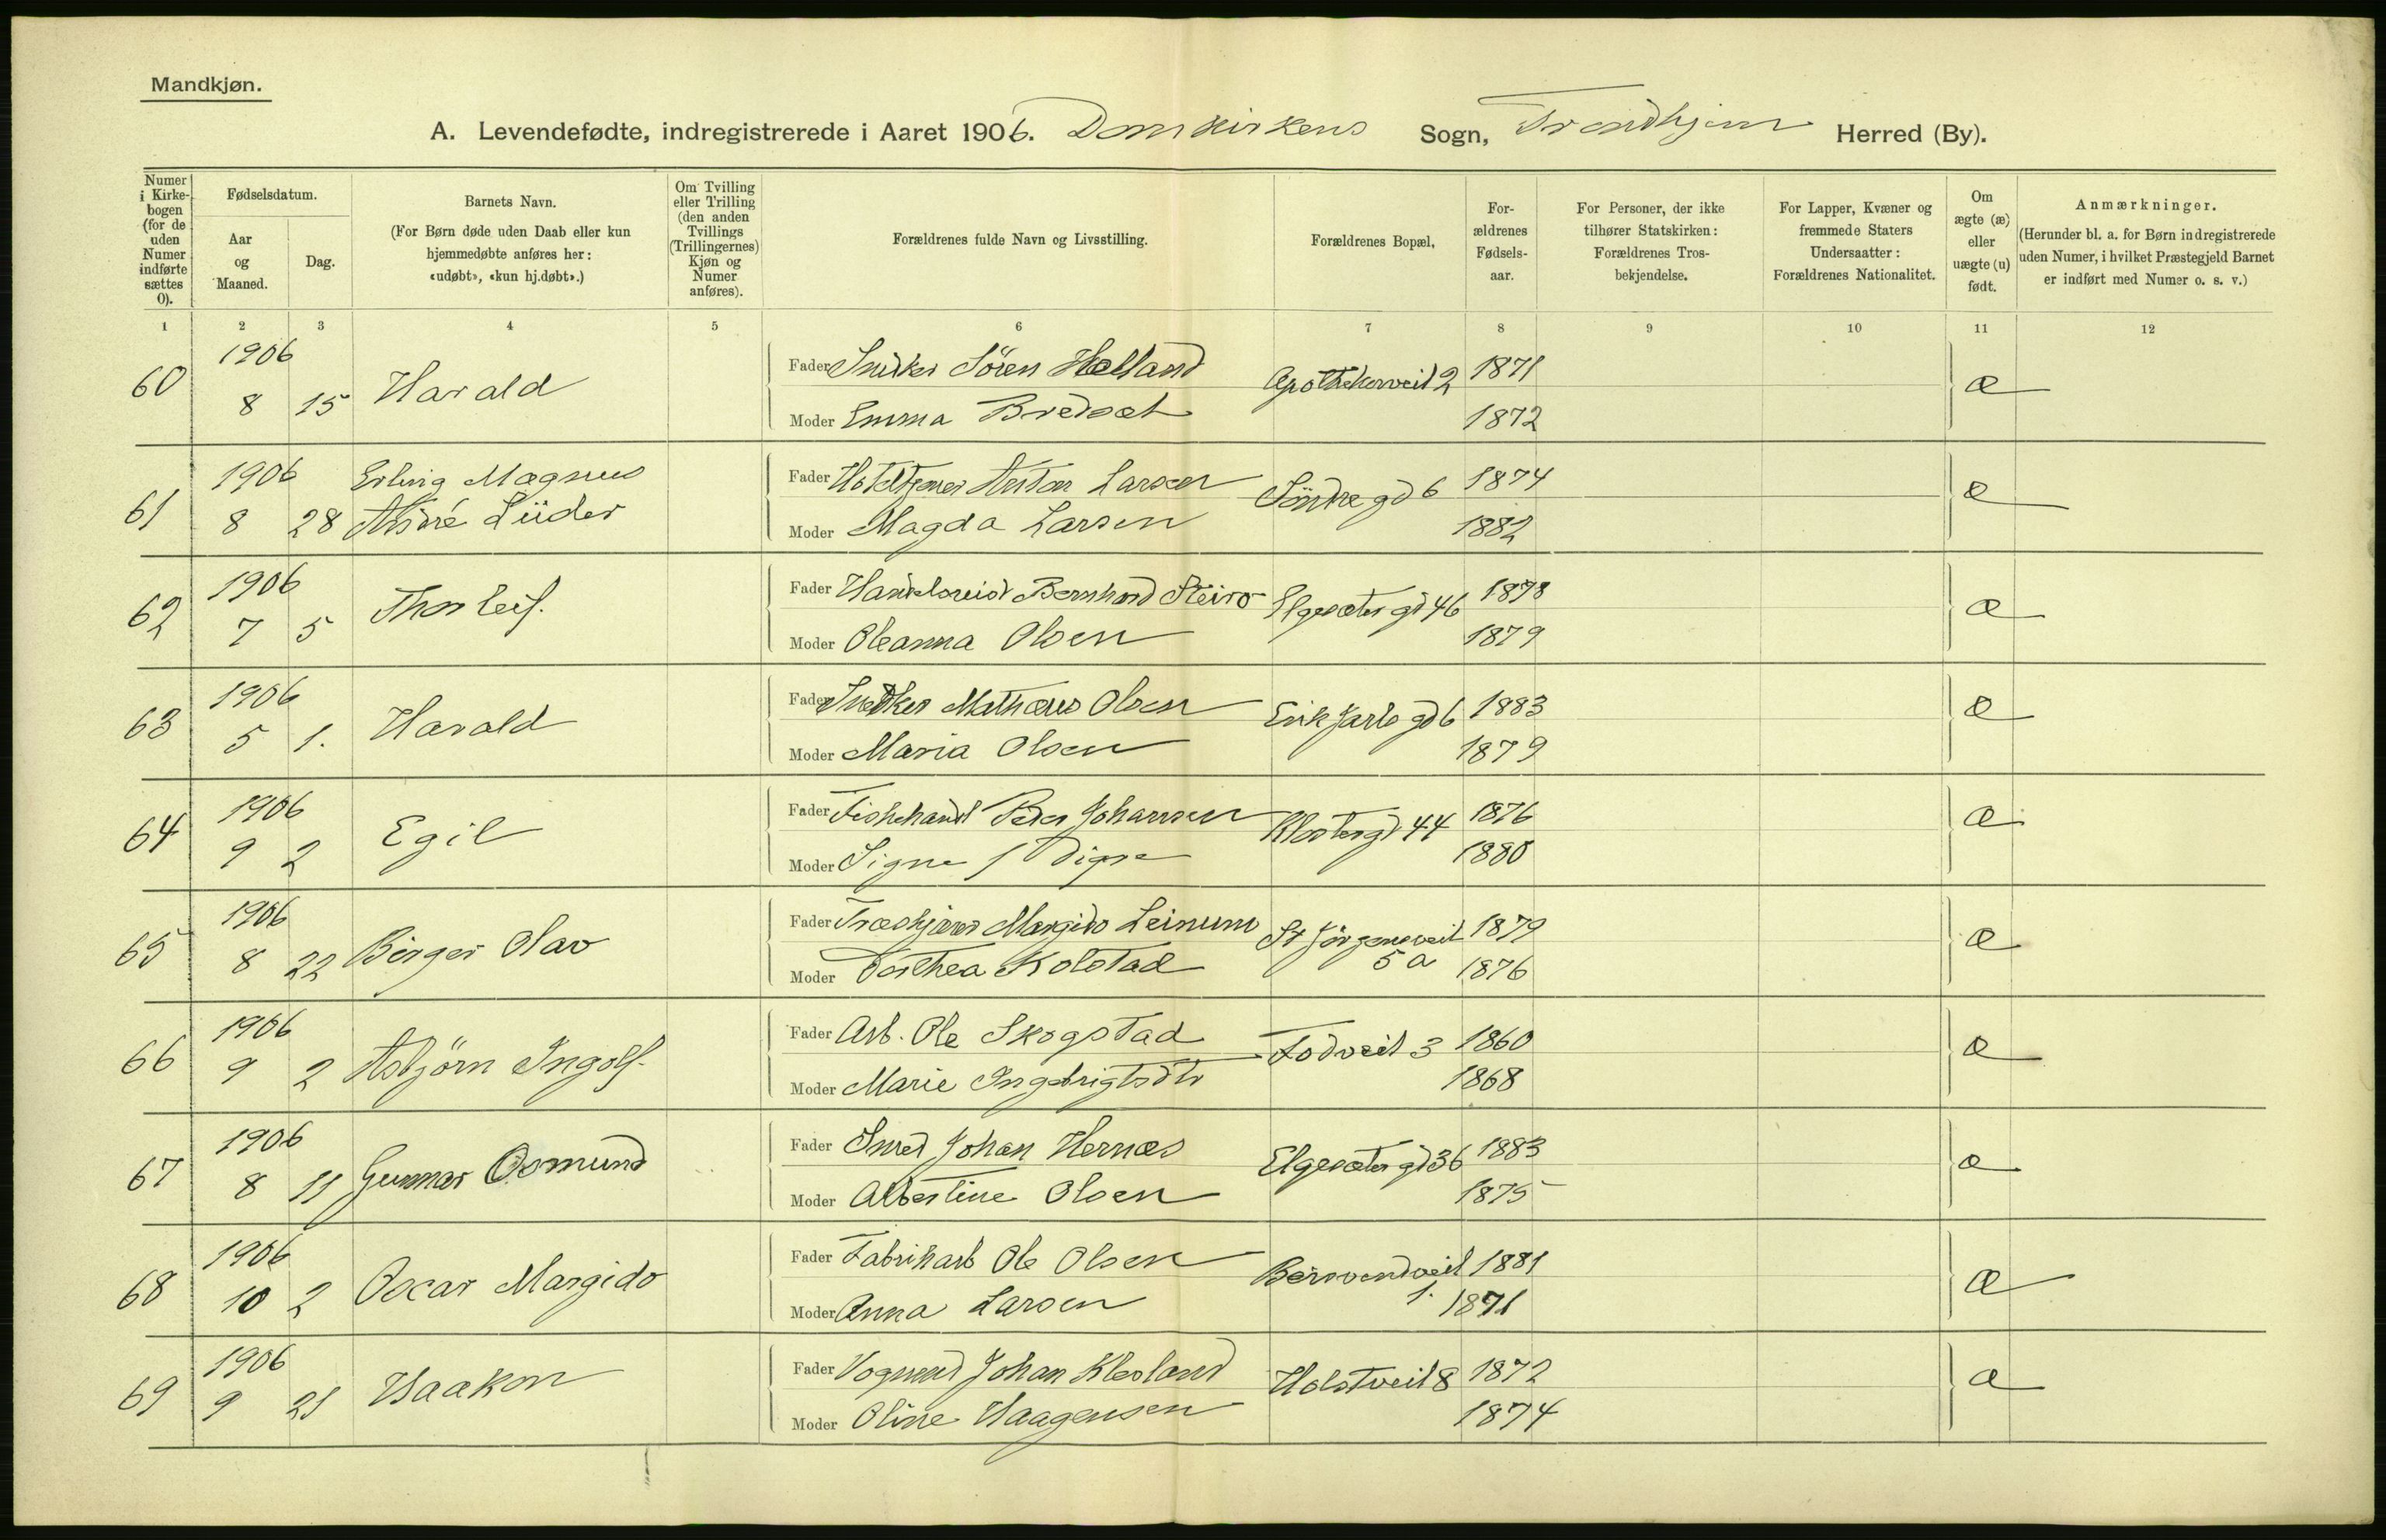 Mandkjøn.
A. Levendefødte, indregistrerede i Aaret 1906. Domkirkens Sogn, Trondhjem Herred (By).
Numer i Kirkebogen (for de uden Numer indførte sættes 0).
Fødselsdatum.
Aar og Maaned.
Dag.
Barnets Navn.
(For Børn døde uden Daab eller kun hjemmedøbte anføres her: «udøbt», «kun hj.døbt».)
Om Tvilling eller Trilling (den anden Tvillings (Trillingernes) Kjøn og Numer anføres).
Forældrenes fulde Navn og Livsstilling.
Forældrenes Bopæl,
Forældrenes Fødselsaar.
For Personer, der ikke tilhører Statskirken: Forældrenes Trosbekjendelse.
For Lapper, Kvæner og fremmede Staters Undersaatter: Forældrenes Nationalitet.
Om ægte (æ) eller uægte (u) født.
Anmærkninger.
(Herunder bl. a. for Børn indregistrerede uden Numer, i hvilket Præstegjeld Barnet er indført med Numer o. s. v.)
1 2 3 4 5 6 7 8 9 10 11 12
60 1906 8 15 Harald
Fader Snidker Sören Helland Apothekerveit 2 1871 æ
Moder Emma Bredsæt 1872
61 1906 8 28 Erling Magnus André Lüder
Fader Larsen Söndre gd 6 1874 æ
Moder Magda Larsen 1882
62 1906 7 5 Thorleif.
Fader Bernhard Steiro Elgesæter gd 46 1878 æ
Moder Oleanna Olsen 1879
63 1906 5 1. Harald
Fader Snedker Mathæus Olsen Erik Jarls gd 6 1883 æ
Moder Maria Olsen 1879
64 1906 9 2 Egil
Fader Fiskehandl Peder Johansen Klostergd 44 1876 æ
Moder Signe 1880
65 1906 8 22 Birger Olav
Fader Margido Leinum St Jörgensveit 5a 1879 æ
Moder Dorthea Kolstad 1876
66 1906 9 2 Asbjörn Ingolf.
Fader Arb. Ole Skogstad Fodveit 3 1860 æ
Moder Marie Ingebrigtsdtr 1868
67 1906 8 11 Gunnar Osmund
Fader Smed Johan Hernæs Elgesæter gd 36 1883 æ
Moder Albertine Olsen 1875
68 1906 10 2 Oscar Margido
Fader Fabrikarb Ole Olsen Bersvendveit 1. 1881 æ
Moder Anna Larsen 1871
69 1906 9 21 Haakon
Fader Vognmd Johan Klesland Holstveit 8 1872 æ
Moder Oline Haagensen 1874